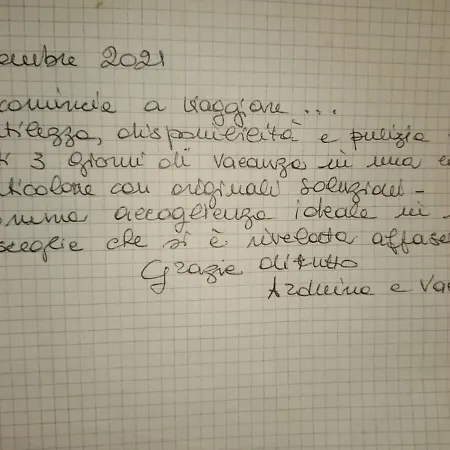 embre 2021
comincia a viaggiare ...
tilezza, disponibilità e pulizia
3 giorni di vacanza in una
ticolare con originali soluzioni -
accoglienza ideale in
sceglie che si è rivelata affasc
Grazie di tutto
Arduina e Va